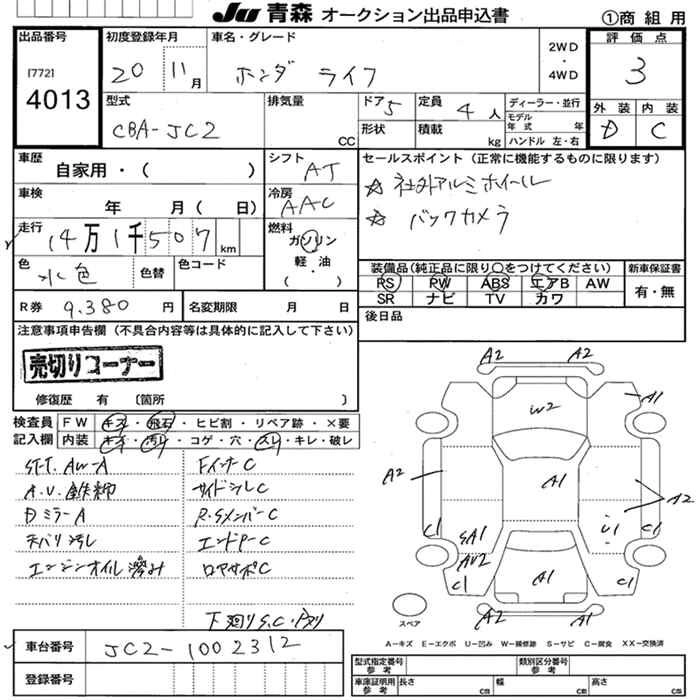 JU 青森 オークション出品申込書 ①商組用
出品番号
[772]
4013
初度登録年月
20 11月
車名・グレード
ホンダ ライフ
2WD
・
4WD
評価点
3
外装 内装
D C
型式
CBA-JC2
排気量
CC
ドア 5
形状
定員 4人
積載 kg
ディーラー・並行
モデル
年式 年
ハンドル 左・右
車歴
自家用・( )
シフト
AT
車検
年 月( 日)
冷房
AAC
走行
14万1千507km
燃料
ガソリン
軽油
・
( )
色
水色
色替
色コード
R券 9.380円
名変期限 月 日
セールスポイント(正常に機能するものに限ります)
☆ 社外アルミホイール
☆ バックカメラ
装備品(純正品に限り○をつけてください)
PS PW ABS エアB AW
SR ナビ TV カワ
新車保証書
有・無
後日品
注意事項申告欄(不具合内容等は具体的に記入して下さい)
売切りコーナー
修復歴 有 〔箇所 〕
検査員
記入欄
FW キズ・飛石・ヒビ割・リペア跡・×要
内装 キズ・汚れ・コゲ・穴・スレ・キレ・破レ
ST.T. AW-A
A.U. 鉄粉
Dミラー A
天バリ汚レ
エンジンオイル滲み
Fインナー C
サイドシル C
R.Sメンバー C
エンドアー C
ロアサポ C
下廻り S.C
A2 A2
A1
W2
A2
A1
A2
U1
C1 C1
SA1
AU2
C1 C1
A1
A2 A2
スペア
A－キズ E－エクボ U－凹み W－補修跡 S－サビ C－腐食 XX－交換済
車台番号
JC2-1002312
登録番号
型式指定番号
参考
類別区分番号
参考
車庫証明用
参考
長さ cm
幅 cm
高さ cm